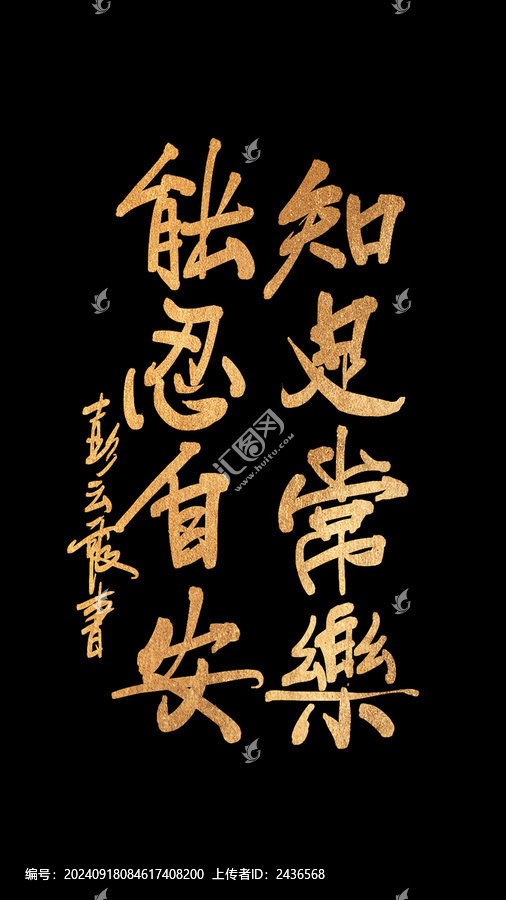 知足常樂
能忍自安
彭云霞書
汇图网
www.huitu.com
编号：20240918084617408200 上传者ID：2436568